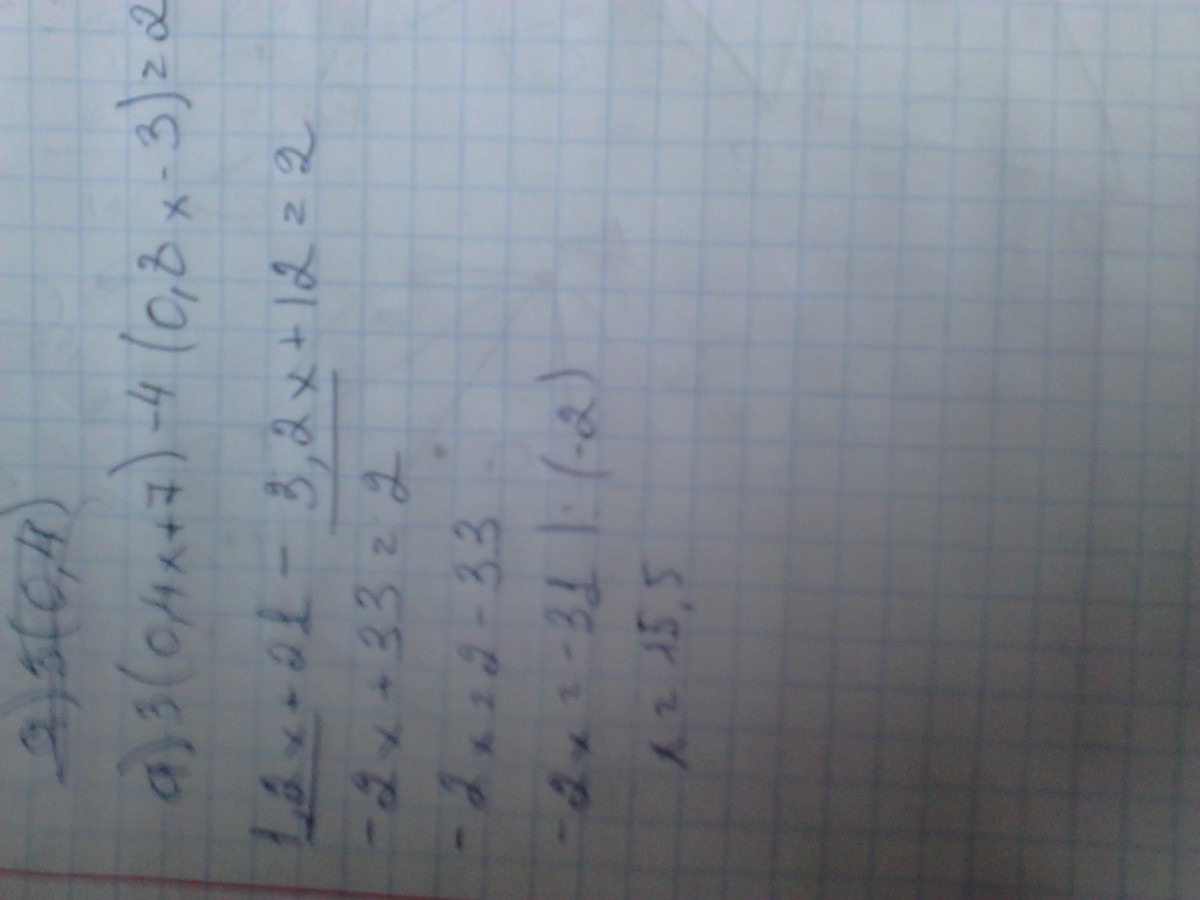 a) 3(0,4)
a) 3(0,4x+7)-4(0,8x-3)=2
1,2x+21-3,2x+12=2
-2x+33=2
-2x=2-33
-2x=-31 |:(-2)
x=15,5